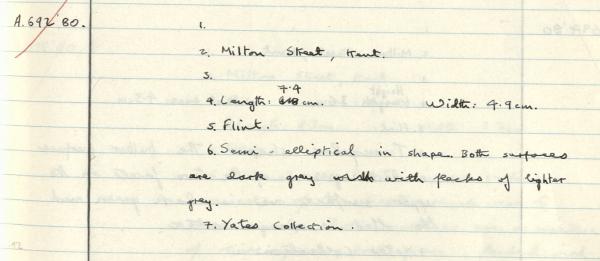 A.692'80.
1.
2. Milton Street, Kent.
3.
7.4
4. Length: cm. Width: 4.9cm.
5. Flint.
6. Semi-elliptical in shape. Both surfaces
are dark grey with flecks of lighter
grey.
7. Yates Collection.